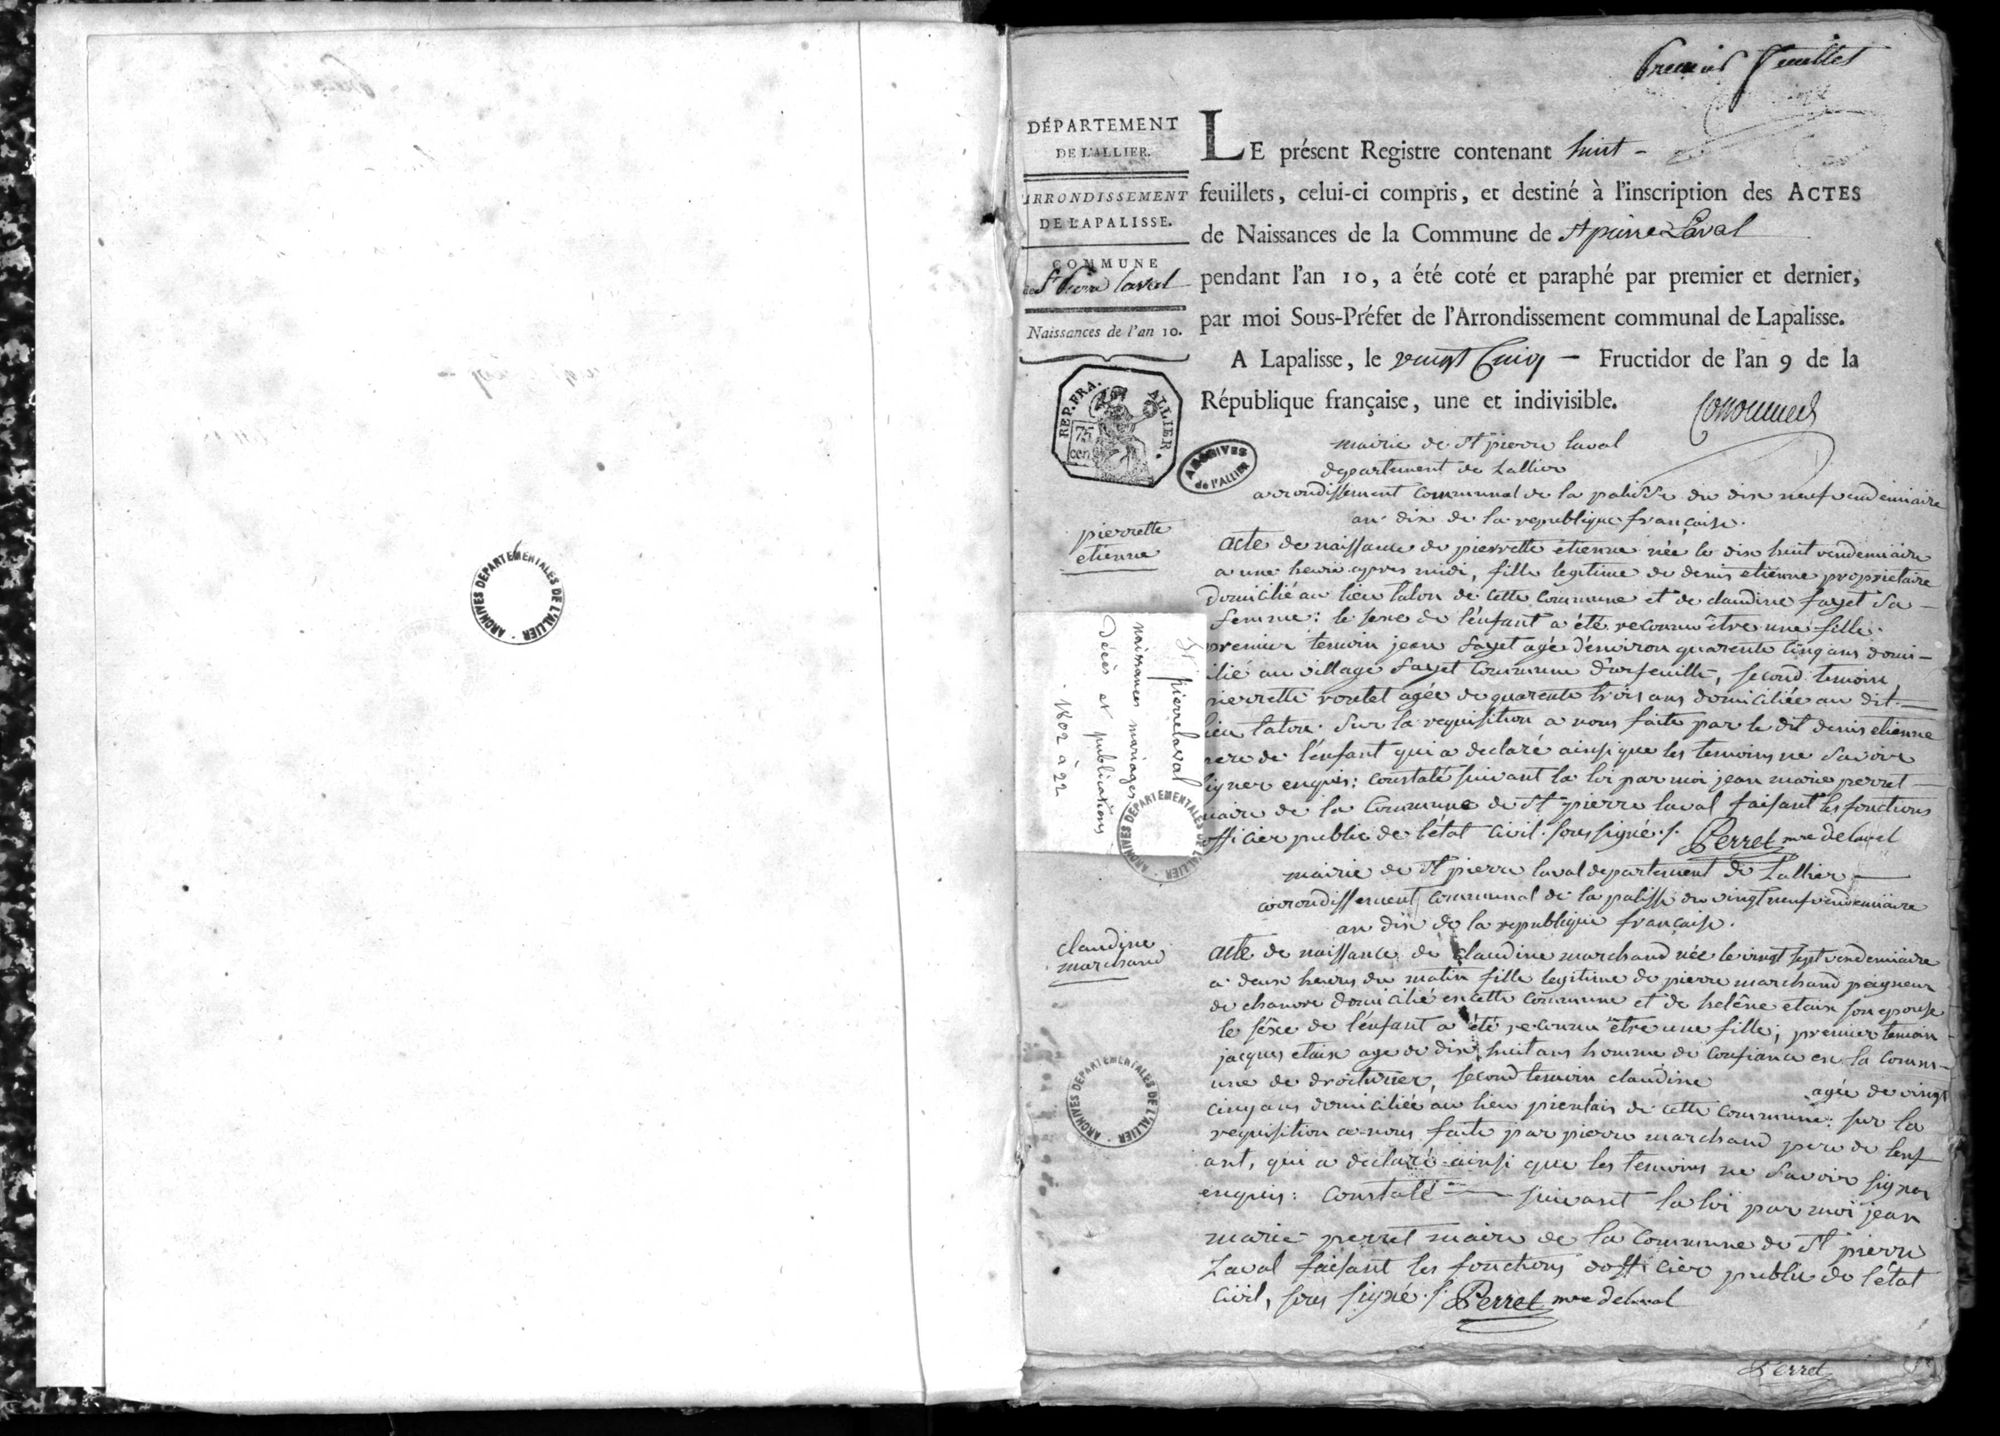 ARCHIVES DEPARTEMENTALES DE L'ALLIER
premier feuillet
DÉPARTEMENT
DE L'ALLIER.
ARRONDISSEMENT
DE LAPALISSE.
COMMUNE
de St Pierre laval
Naissances de l'an 10.
REP. FRA. ALLIER.
75
cen
ARCHIVES
de l'ALLIER
LE présent Registre contenant huit -
feuillets, celui-ci compris, et destiné à l'inscription des ACTES
de Naissances de la Commune de St pierre Laval
pendant l'an 10, a été coté et paraphé par premier et dernier,
par moi Sous-Préfet de l'Arrondissement communal de Lapalisse.
A Lapalisse, le vingt Cinq - Fructidor de l'an 9 de la
République française, une et indivisible.
mairie de St pierre laval
departement de Lallier
arrondissement communal de la palisse du dix neuf vendemiaire
an dix de la republique française.
pierrette
etienne
acte de naissance de pierrette etienne née le dix huit vendemiaire
a une heure apres midi, fille legitime de denis etienne proprietaire
domicilié au lieu laton de cette commune et de claudine fayet sa
femme: le sexe de l'enfant a été reconnu être une fille.
premier temoin jean fayet agé d'environ quarente cinq ans domi-
cilié au village fayet commune d'arfeuille, second temoin
pierrette voutet agée de quarente trois ans domiciliée au dit
lieu laton. Sur la requisition a nous faite par le dit denis etienne
pere de l'enfant qui a declaré ainsi que les temoins ne savoir
signer enquis: constaté suivant la loi par moi jean marie perret
maire de la commune de St pierre laval faisant les fonctions
officier public de letat civil. sous signé ./. Perret mre de laval
St pierre laval
naissances mariages
Décès et publications
1802 à 22
ARCHIVES DEPARTEMENTALES DE L'ALLIER
mairie de St pierre laval departement de Lallier
arrondissement communal de la palisse du vingt neuf vendemiaire
an dix de la republique française.
claudine
marchand
acte de naissance de claudine marchand née le vingt sept vendemiaire
a deux heures du matin fille legitime de pierre marchand peigneur
de chanvre domicilié en cette commune et de helêne etaix son epouse
le sêxe de l'enfant a été reconnu être une fille; premier temoin
jacques etaix age de dix huit ans homme de confiance en la comm-
une de droiturier, second temoin claudine agée de vingt
cinq ans domiciliée au lieu de cette commune: sur la
requisition a nous faite par pierre marchand pere de lenf
ant, qui a declaré ainsi que les temoins ne savoir signer
enquis: constaté suivant la loi par moi jean
marie perret maire de la commune de St pierre
Laval faisant les fonctions dofficier public de l'état
civil, sous signé ./. Perret mre de laval
ARCHIVES DEPARTEMENTALES DE L'ALLIER
Perret